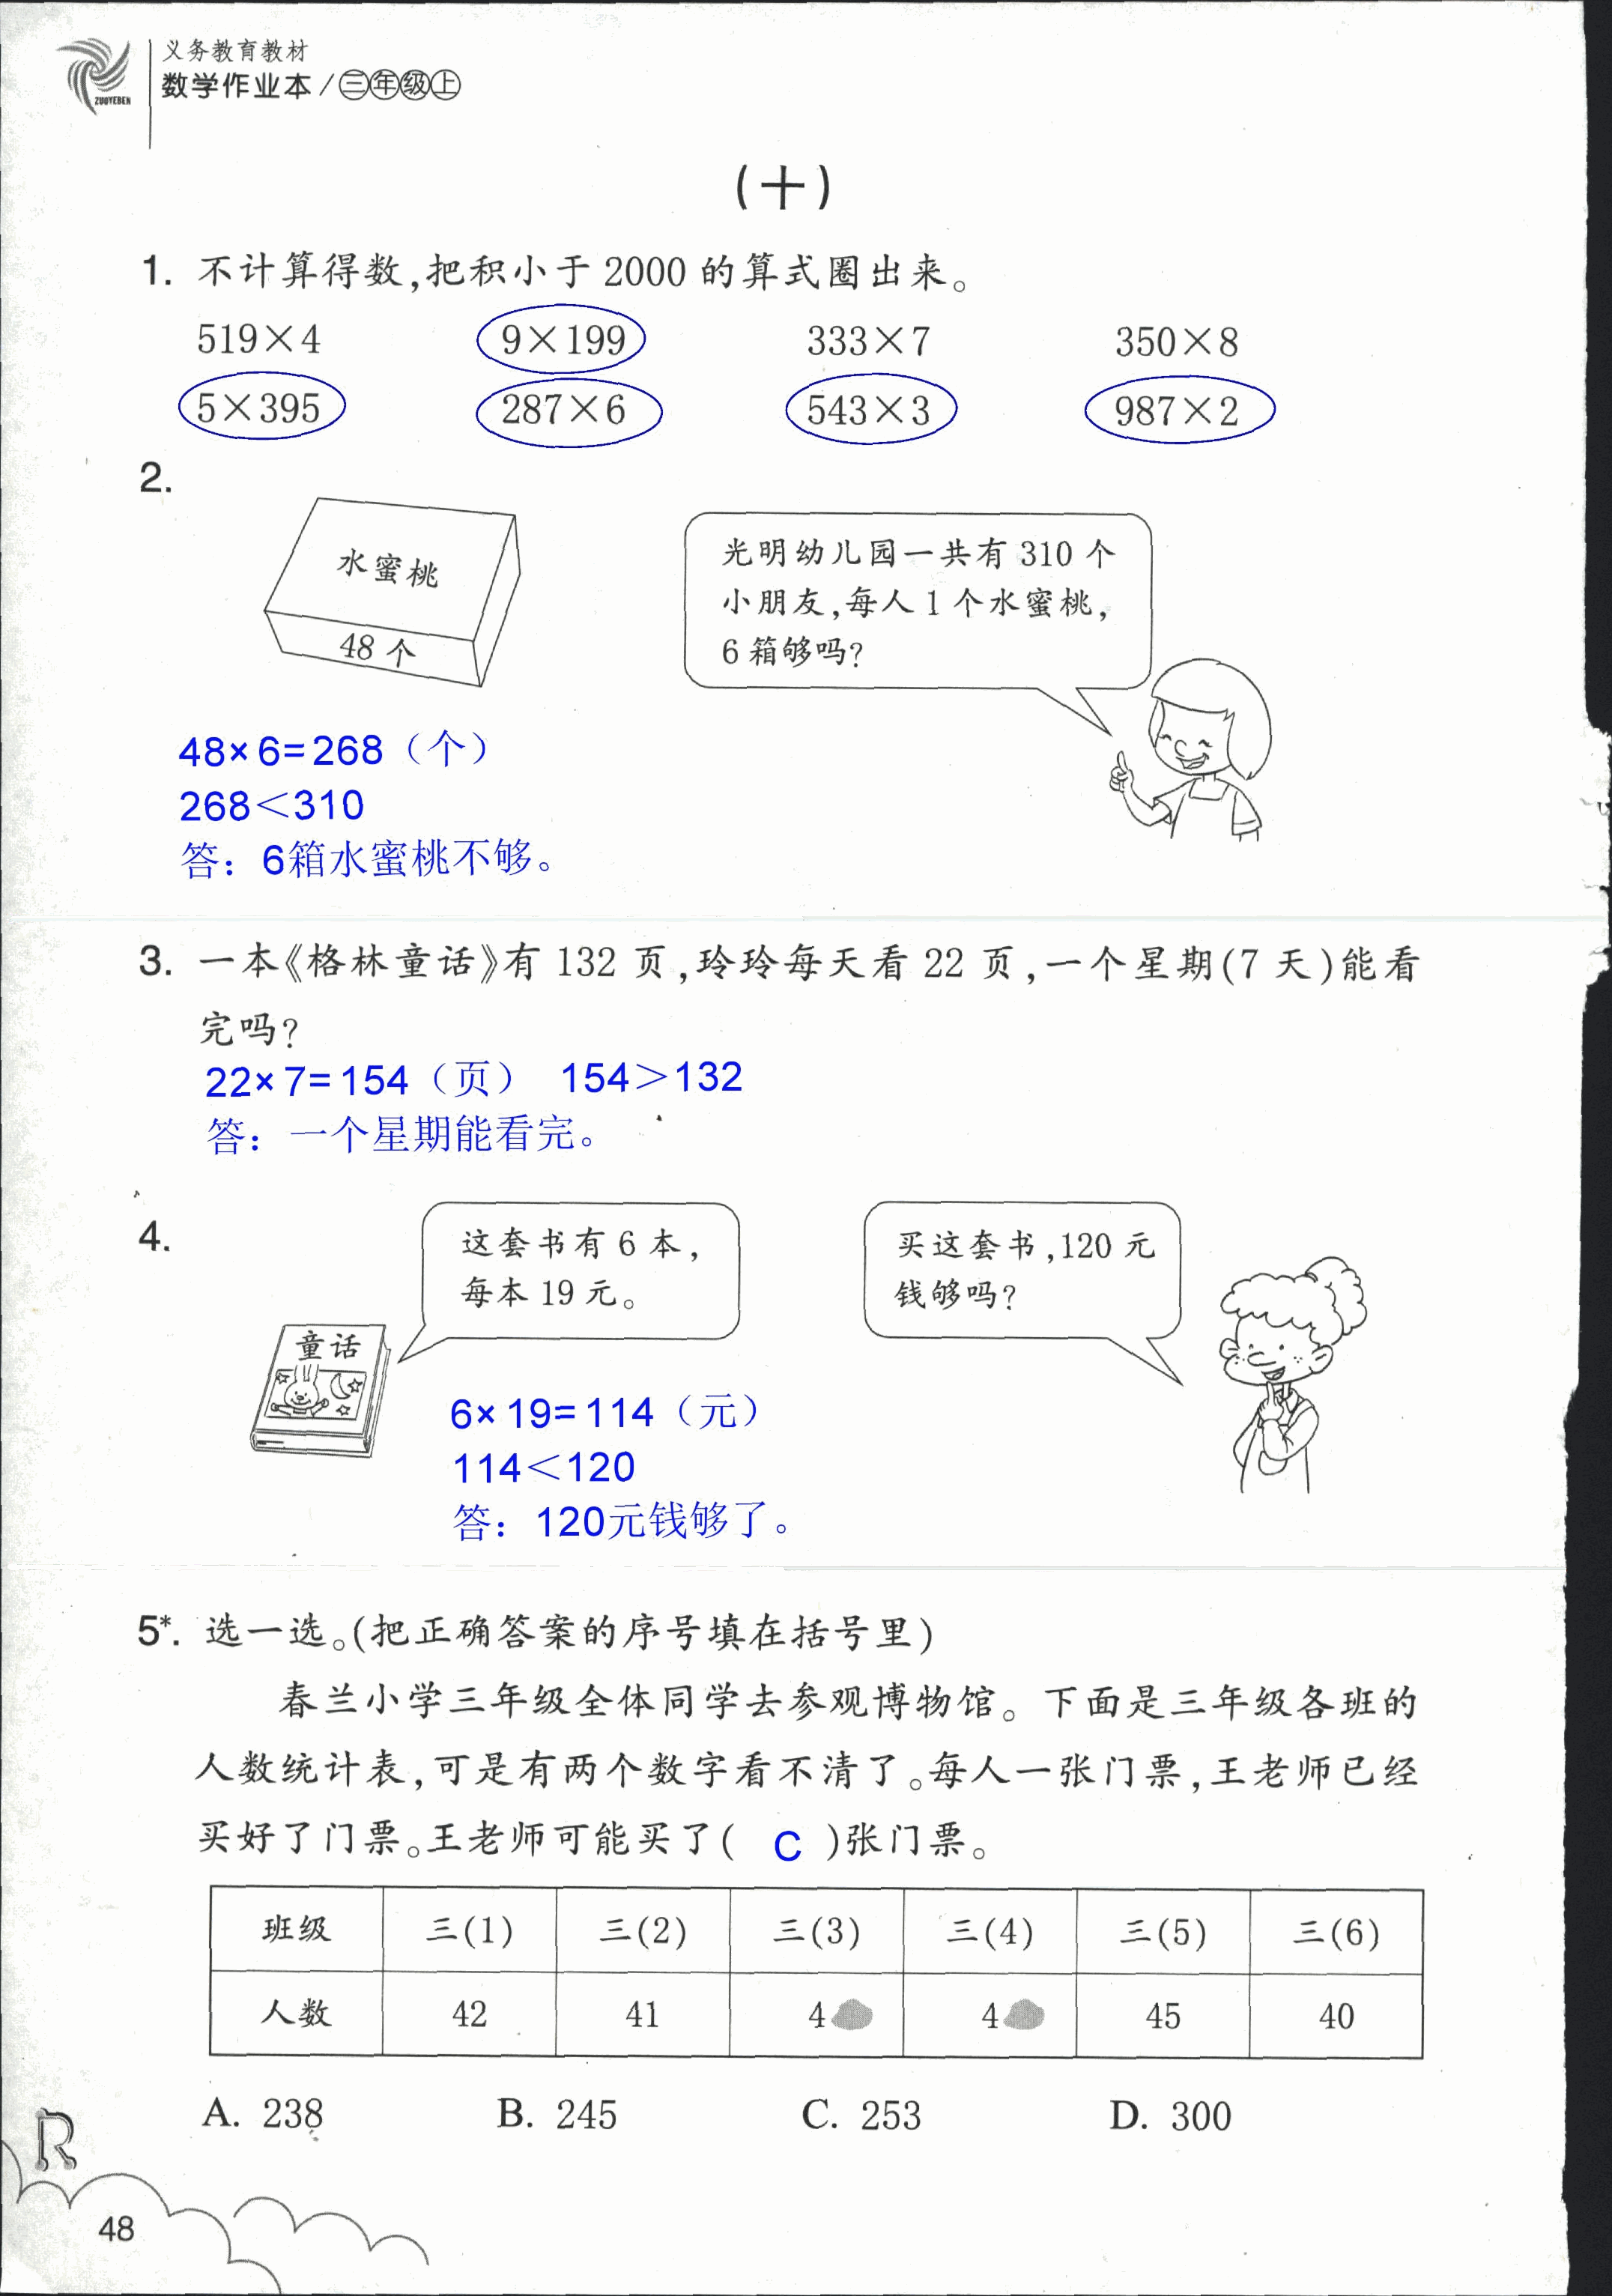 义务教育教材
数学作业本/三年级上
ZUOYEBEN
(十)
1. 不计算得数,把积小于 2000 的算式圈出来。
519×4 9×199 333×7 350×8
5×395 287×6 543×3 987×2
2.
水蜜桃
48 个
光明幼儿园一共有 310 个
小朋友,每人 1 个水蜜桃,
6 箱够吗?
48×6=268（个）
268<310
答：6箱水蜜桃不够。
3. 一本《格林童话》有 132 页,玲玲每天看 22 页,一个星期(7 天)能看
完吗?
22×7=154（页） 154>132
答：一个星期能看完。
4.
这套书有 6 本,
每本 19 元。
买这套书,120 元
钱够吗?
童话
6×19=114（元）
114<120
答：120元钱够了。
5*. 选一选。(把正确答案的序号填在括号里)
春兰小学三年级全体同学去参观博物馆。下面是三年级各班的
人数统计表,可是有两个数字看不清了。每人一张门票,王老师已经
买好了门票。王老师可能买了( C )张门票。
班级 三(1) 三(2) 三(3) 三(4) 三(5) 三(6)
人数 42 41 4 4 45 40
A. 238 B. 245 C. 253 D. 300
R
48